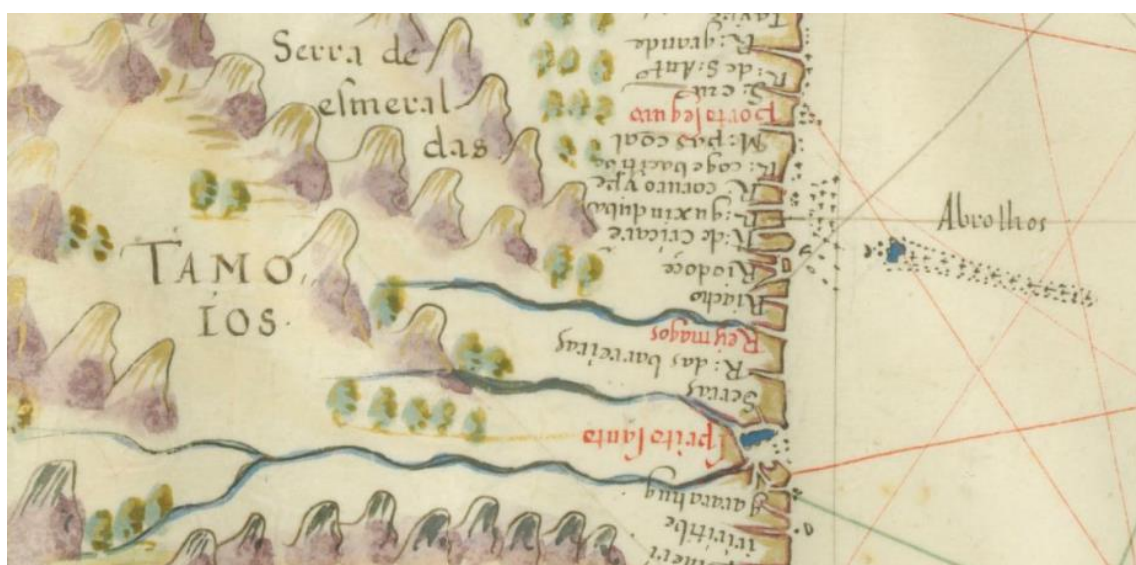 Serra de
eſmeral
das
TAMO
IOS.
Abrolhos
R: grande
R: de S: Antº
S: cru
portoſeguro
M: pascoal
R: coruro vpe
R: guxinduba
R: de Cricare
Riodoçe
Riacho
Reymagos
R: das barreiras
Serras
ſpritoſanto